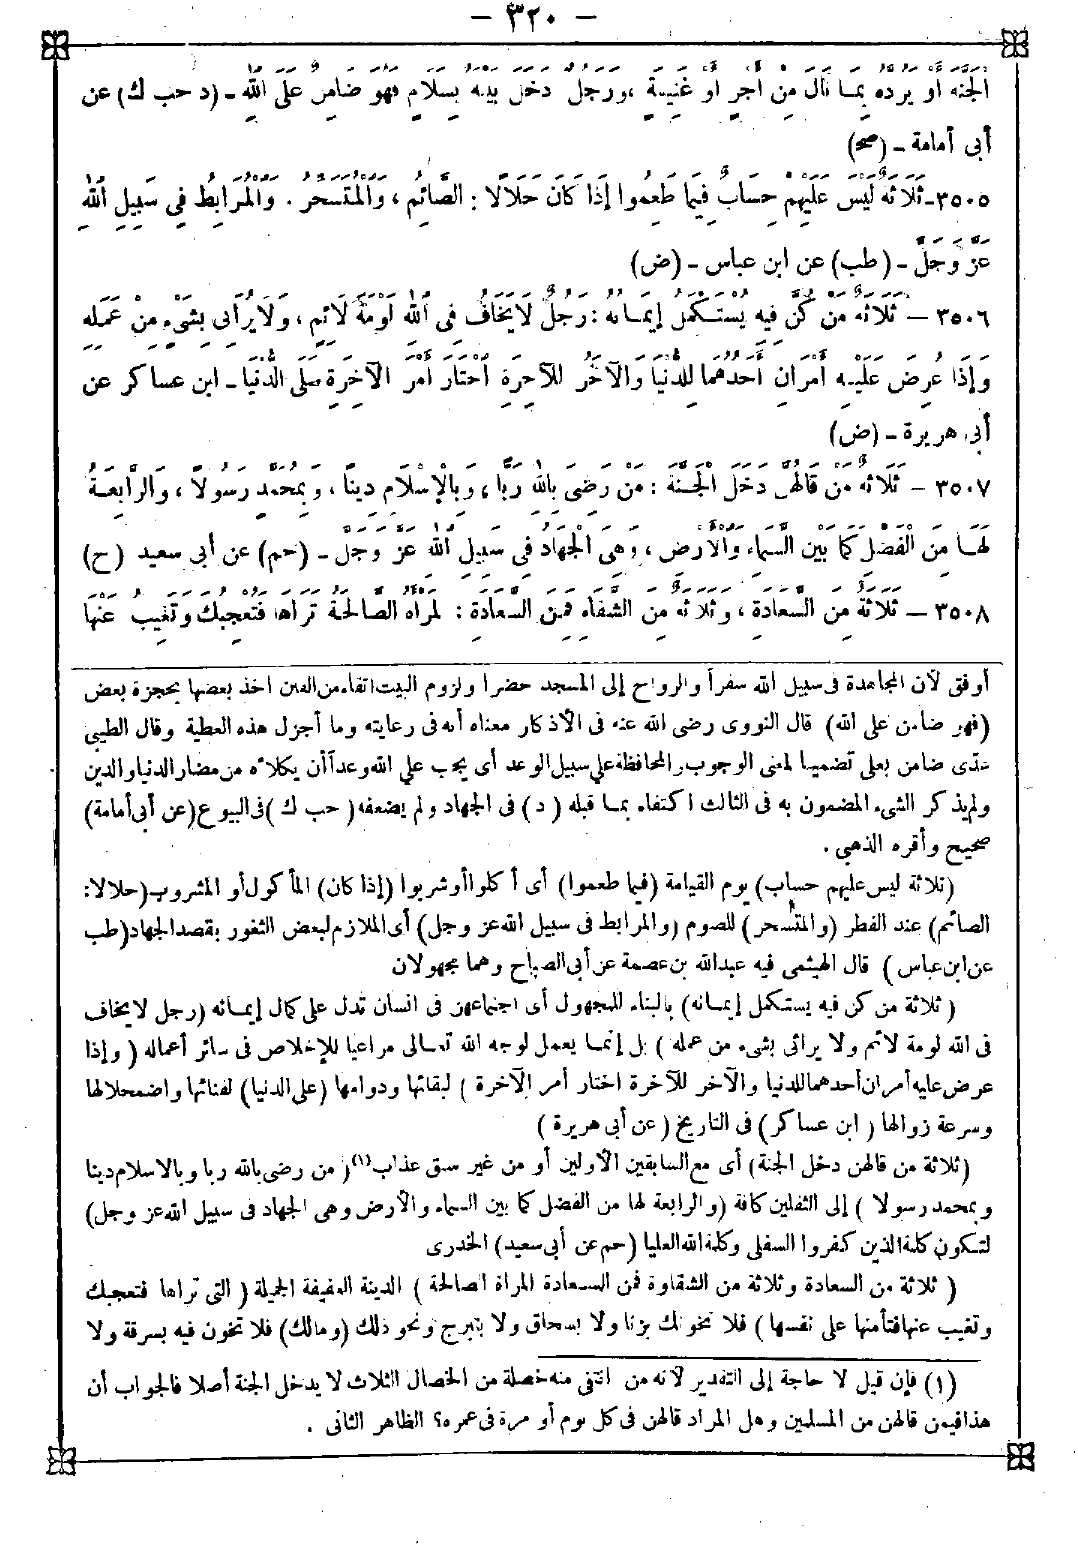 — ٣٢٠ —
الْجَنَّةَ أَوْ يَرُدَّهُ بِمَا نَالَ مِنْ أَجْرٍ أَوْ غَنِيمَةٍ ، وَرَجُلٌ دَخَلَ بَيْتَهُ بِسَلَامٍ فَهُوَ ضَامِنٌ عَلَى اللهِ ـ (د حب ك) عن
أبى أمامة ـ (صح)
٣٥٠٥ـ ثَلَاثَةٌ لَيْسَ عَلَيْهِمْ حِسَابٌ فِيمَا طَعِمُوا إِذَا كَانَ حَلَالًا : الصَّائِمُ ، وَالْمُتَسَحِّرُ . وَالْمُرَابِطُ فِي سَبِيلِ اللهِ
عَزَّ وَجَلَّ ـ (طب) عن ابن عباس ـ (ض)
٣٥٠٦ — ثَلَاثَةٌ مَنْ كُنَّ فِيهِ يُسْتَكْمَلُ إِيمَانُهُ : رَجُلٌ لَا يَخَافُ فِي اللهِ لَوْمَةَ لَائِمٍ ، وَلَا يُرَائِى بِشَىْءٍ مِنْ عَمَلِهِ
وَإِذَا عُرِضَ عَلَيْهِ أَمْرَانِ أَحَدُهُمَا لِلدُّنْيَا وَالْآخَرُ لِلْآخِرَةِ اخْتَارَ أَمْرَ الْآخِرَةِ عَلَى الدُّنْيَا ـ ابن عساكر عن
أبى هريرة ـ (ض)
٣٥٠٧ — ثَلَاثَةٌ مَنْ قَالَهُنَّ دَخَلَ الْجَنَّةَ : مَنْ رَضِىَ بِاللهِ رَبًّا ، وَبِالْإِسْلَامِ دِينًا ، وَبِمُحَمَّدٍ رَسُولًا ، وَالرَّابِعَةُ
لَهَا مِنَ الْفَضْلِ كَمَا بَيْنَ السَّمَاءِ وَالْأَرْضِ ، وَهِىَ الْجِهَادُ فِي سَبِيلِ اللهِ عَزَّ وَجَلَّ ـ (حم) عن أبى سعيد (ح)
٣٥٠٨ — ثَلَاثَةٌ مِنَ السَّعَادَةِ ، وَثَلَاثَةٌ مِنَ الشَّقَاءِ فَمِنَ السَّعَادَةِ : الْمَرْأَةُ الصَّالِحَةُ تَرَاهَا فَتُعْجِبُكَ وَتَغِيبُ عَنْهَا
أوفق لأن المجاهدة فى سبيل الله سفراً والرواح إلى المسجد حضرا ولزوم البيت اتقاء من الفتن أخذ بعضها بحجزة بعض
(فهو ضامن على الله) قال النووى رضى الله عنه فى الأذكار معناه أنه فى رعايته وما أجزل هذه العطية وقال الطيبى
عدى ضامن بعلى تضمينا لمعنى الوجوب والمحافظة على سبيل الوعد أى يجب على الله وعدا أن يكلأه من مضار الدنيا والدين
ولم يذكر الشىء المضمون به فى الثالث اكتفاء بما قبله (د) فى الجهاد ولم يضعفه (حب ك) فى البيوع (عن أبى أمامة)
صحيح وأقره الذهبى .
(ثلاثة ليس عليهم حساب) يوم القيامة (فيما طعموا) أى أكلوا أو شربوا (إذا كان) المأكول أو المشروب (حلالا:
الصائم) عند الفطر (والمتسحر) للصوم (والمرابط فى سبيل الله عز وجل) أى الملازم لبعض الثغور بقصد الجهاد (طب
عن ابن عباس) قال الهيثمى فيه عبدالله بن عصمة عن أبى الصباح وهما مجهولان
(ثلاثة من كن فيه يستكمل إيمانه) بالبناء للمجهول أى اجتماعهن فى انسان تدل على كمال إيمانه (رجل لا يخاف
فى الله لومة لائم ولا يرائى بشىء من عمله) بل إنما يعمل لوجه الله تعالى مراعيا للإخلاص فى سائر أعماله (وإذا
عرض عليه أمران أحدهما للدنيا والآخر للآخرة اختار أمر الآخرة) لبقائها ودوامها (على الدنيا) لفنائها واضمحلالها
وسرعة زوالها (ابن عساكر) فى التاريخ (عن أبى هريرة)
(ثلاثة من قالهن دخل الجنة) أى مع السابقين الأولين أو من غير سبق عذاب(١) (من رضى بالله ربا وبالاسلام دينا
وبمحمد رسولا) إلى الثقلين كافة (والرابعة لها من الفضل كما بين السماء والأرض وهى الجهاد فى سبيل الله عز وجل)
لتكون كلمة الذين كفروا السفلى وكلمة الله العليا (حم عن أبى سعيد) الخدرى
(ثلاثة من السعادة وثلاثة من الشقاوة فمن السعادة المرأة الصالحة) الدينة العفيفة الجميلة (التى تراها فتعجبك
وتغيب عنها فتأمنها على نفسها) فلا تخونك بزنا ولا بسحاق ولا بتبرج ونحو ذلك (ومالك) فلا تخون فيه بسرقة ولا
(١) فإن قيل لا حاجة إلى التقدير لأنه من انتفى منه خصلة من الخصال الثلاث لا يدخل الجنة أصلا فالجواب أن
هذا فيمن قالهن من المسلمين وهل المراد قالهن فى كل يوم أو مرة فى عمره؟ الظاهر الثانى .